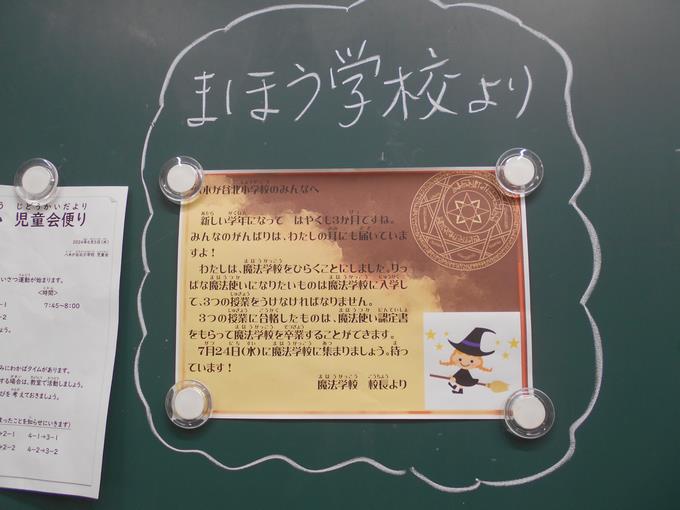 まほう学校より
木が谷北小学校のみんなへ
新しい学年になって はやくも3か月ですね。
みんなのがんばりは、わたしの耳にも届いています
よ！
わたしは、魔法学校をひらくことにしました。りっ
ぱな魔法使いになりたいものは魔法学校に入学し
て、3つの授業をうけなければなりません。
3つの授業に合格したものは、魔法使い認定書
をもらって魔法学校を卒業することができます。
7月24日(水)に魔法学校に集まりましょう。待っ
ています！
魔法学校 校長より
じどうかいだより
児童会便り
2024年6月5日(水)
八木が谷北小学校 児童会
いさつ運動が始まります。
<時間>
-1 7:45～8:00
みにわかばタイムがあります。
する場合は、教室で活動しましょう。
びを考えておきましょう。
まったことを知らせにいきます)
2-1 4-1→3-1
2-2 4-2→3-2